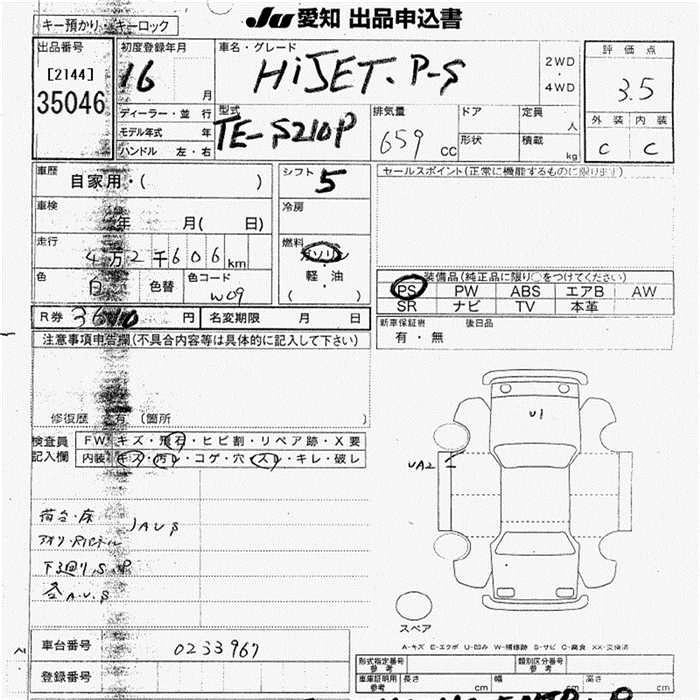 キー預かり・キーロック
JU 愛知 出品申込書
出品番号
[2144]
35046
初度登録年月
16 月
車名・グレード
HiJET. P-S
2WD
・
4WD
評価点
3.5
外装 内装
C C
ディーラー・並行
モデル年式 年
ハンドル 左・右
型式
TE-S210P
排気量
659 CC
ドア
形状
定員
人
積載
kg
車歴
自家用・( )
シフト 5
セールスポイント(正常に機能するものに限ります)
車検
年 月( 日)
冷房
走行
4万2千606km
燃料
ガソリン
・
軽・油
( )
色
白
色替
色コード
W09
装備品(純正品に限り○をつけてください)
PS PW ABS エアB AW
SR ナビ TV 本革
R券 円
名変期限 月 日
新車保証書 後日品
有・無
注意事項申告欄(不具合内容等は具体的に記入して下さい)
修復歴 有 (箇所 )
検査員
記入欄
FW キズ・飛石・ヒビ割・リペア跡・X要
内装 キズ・汚レ・コゲ・穴・スレ・キレ・破レ
U1
UA2
荷台・床
AUS
下廻り.S.P
各A.U.S
スペア
A-キズ E-エクボ U-凹み W-補修跡 S-サビ C-腐食 XX-交換済
車台番号
0233967
登録番号
形式指定番号
参考
類別区分番号
参考
車庫証明用
参考
長さ cm
幅 cm
高さ cm